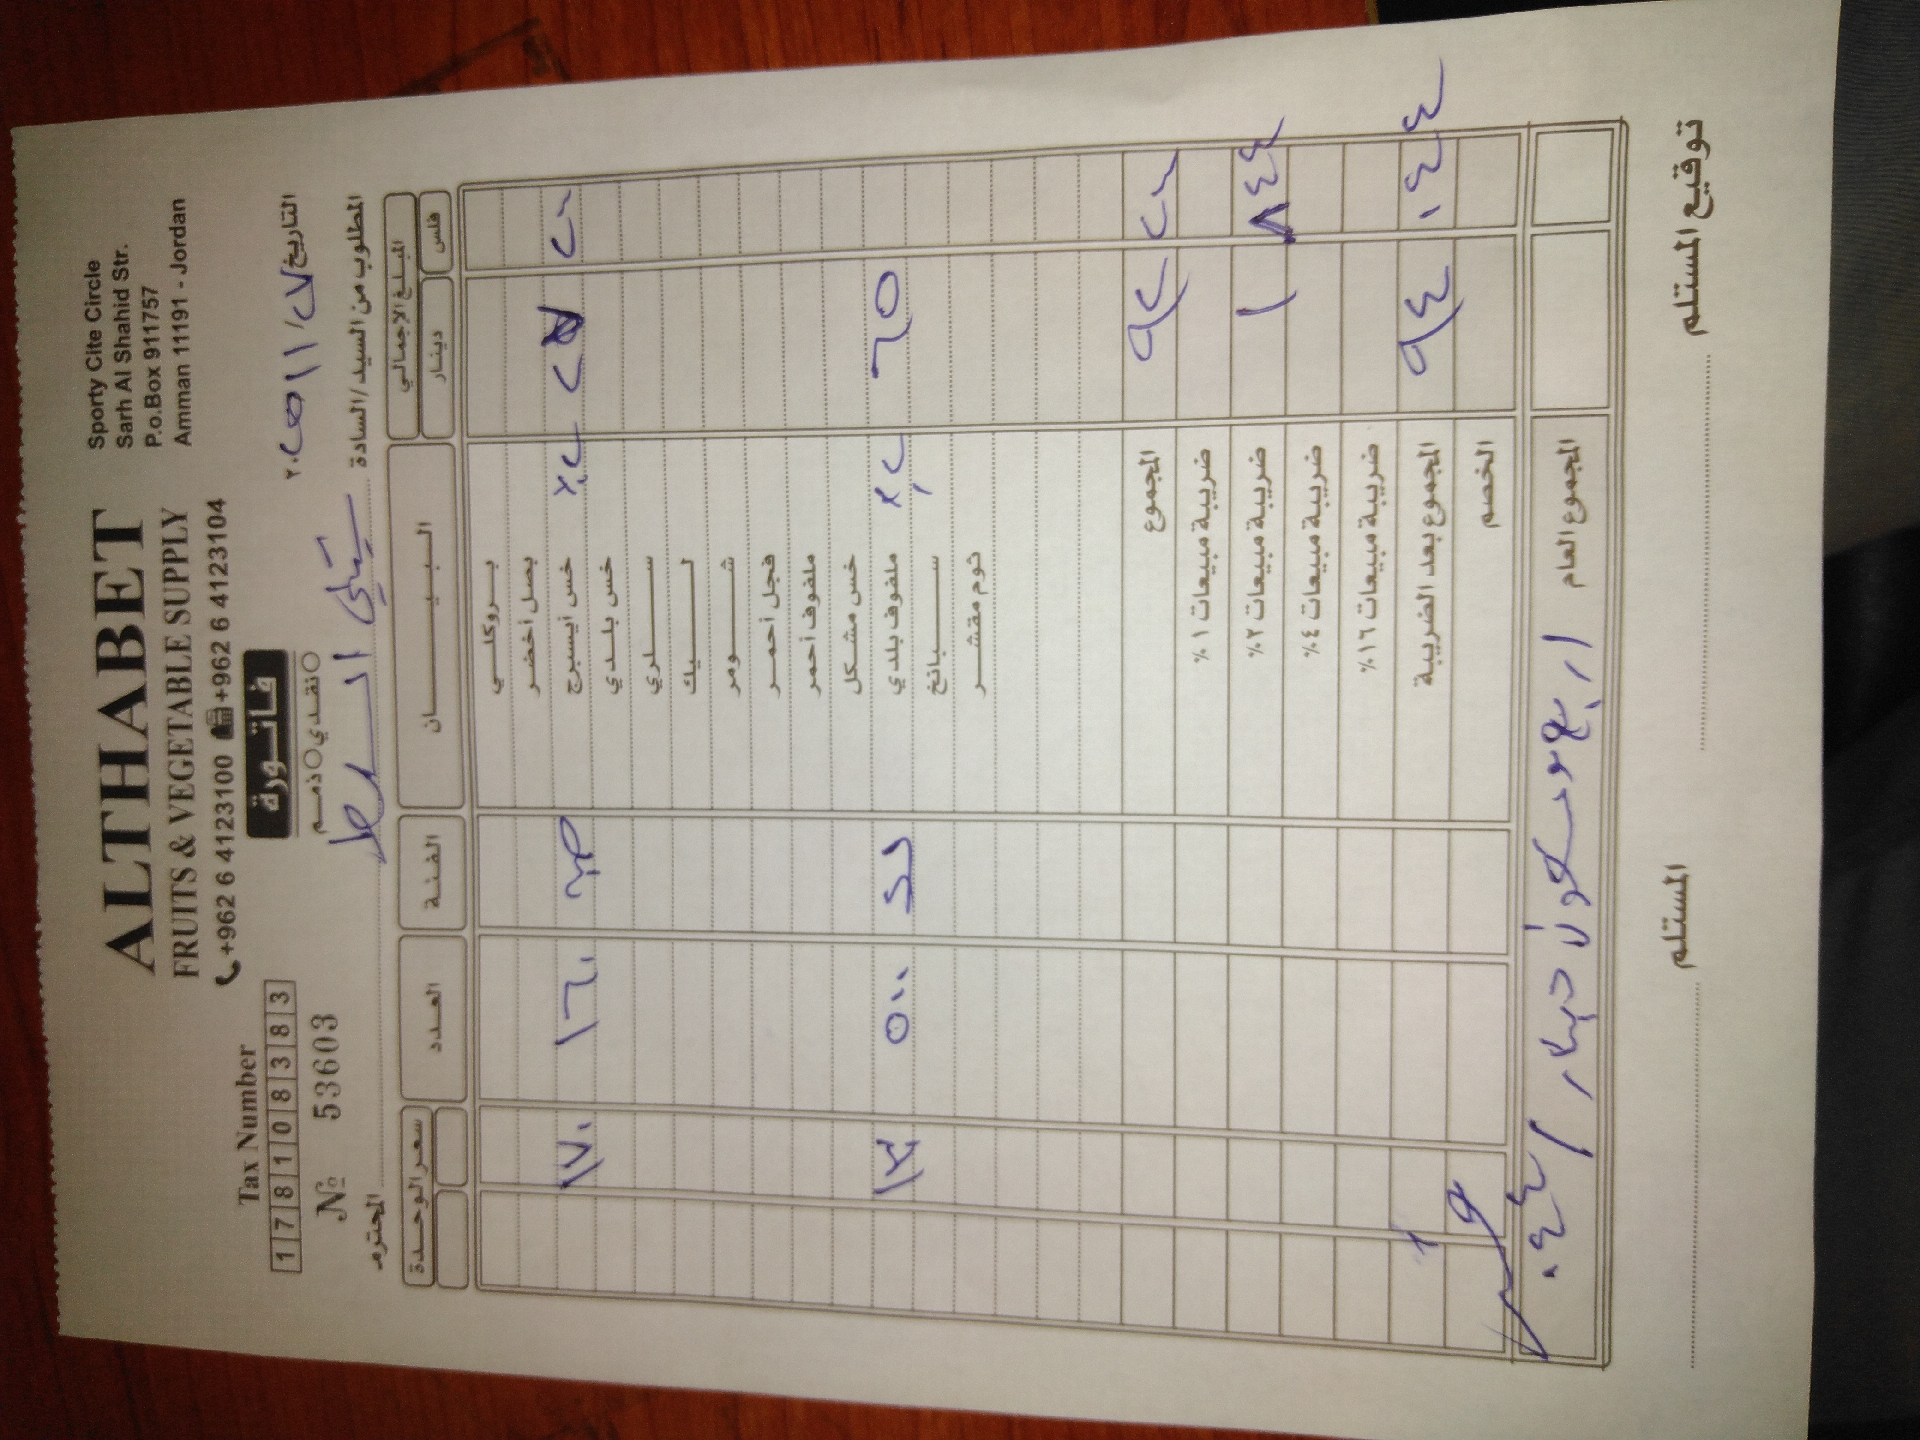 ALTHABET
FRUITS & VEGETABLE SUPPLY
+962 6 4123100 +962 6 4123104
Sporty Cite Circle
Sarh Al Shahid Str.
P.o.Box 911757
Amman 11191 - Jordan
Tax Number
1 7 8 1 0 8 3 8 3
№ 53603
فاتورة
نقدي ذمم
التاريخ
المطلوب من السيد/السادة
المحترم
المبلغ الإجمالي
دينار فلس
البيان
الفئة
العدد
سعر الوحدة
بروكلي
بصل أخضر
خس أيسبرج ٪٢ ١٦٠ ١٧٠
خس بلدي
سلري
ليك
شومر
فجل أحمر
ملفوف أحمر
خس مشكل
ملفوف بلدي ٪٢ ٦٥ ٥٠٠ ١٣٠
سبانخ
ثوم مقشر
المجموع ٩٢ ٢٠٠
ضريبة مبيعات ١٪
ضريبة مبيعات ٢٪ ١ ٨٤٤
ضريبة مبيعات ٤٪
ضريبة مبيعات ١٦٪
المجموع بعد الضريبة ٩٤ ٠٤٤
الخصم
المجموع العام
المستلم
توقيع المستلم